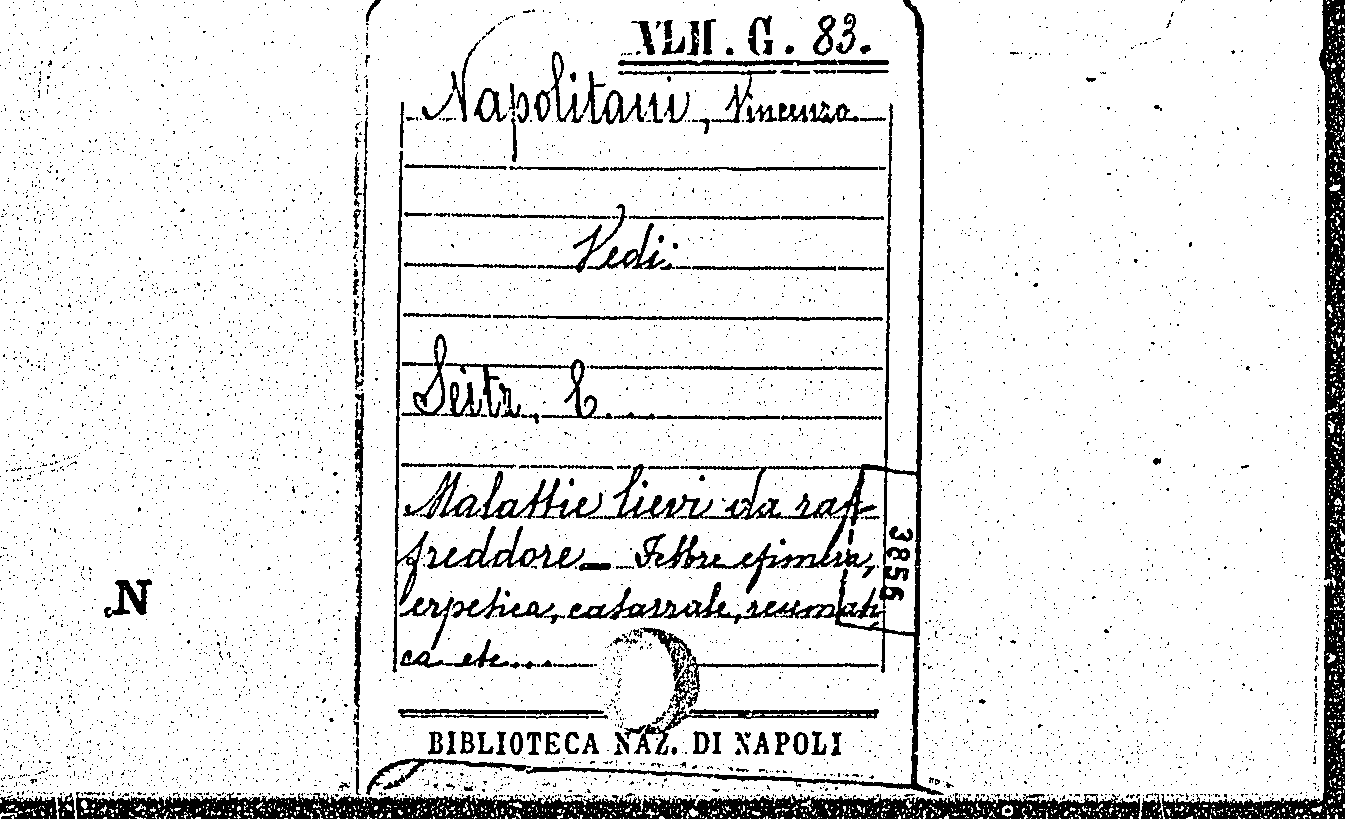 XLII. G. 83.
Napolitani, Vincenzo.
Vedi:
Seitz, C....
Malattie lievi da raf-
freddore — Febbre efimera,
erpetica, catarrale, reumati
ca etc...
3856
N
BIBLIOTECA NAZ. DI NAPOLI